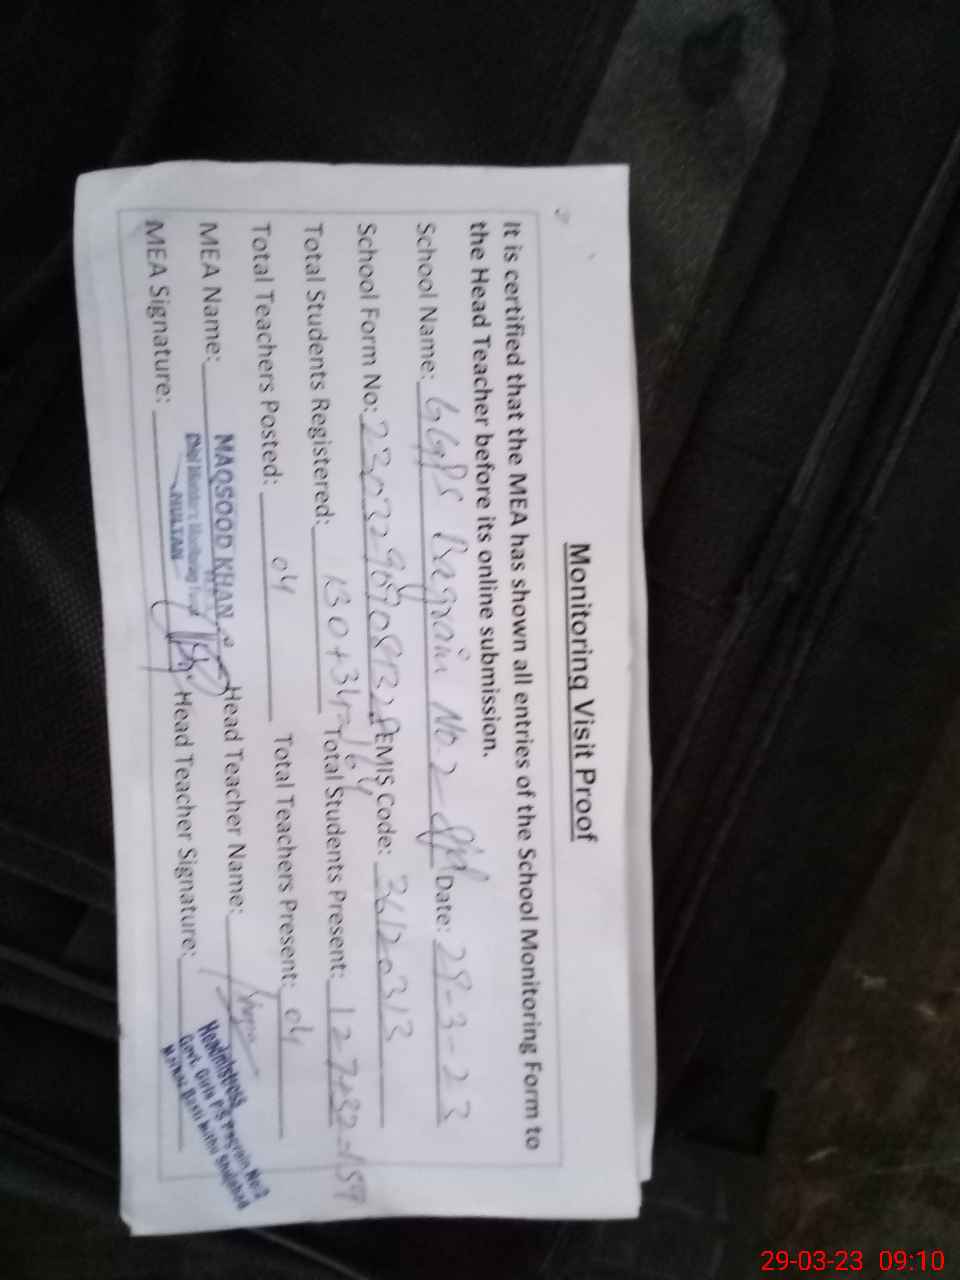 Monitoring Visit Proof
It is certified that the MEA has shown all entries of the School Monitoring Form to
the Head Teacher before its online submission.
School Name: GGPS No. 2 Date: 29-3-23
School Form No: EMIS Code: 36120313
Total Students Registered: 130+34=164 Total Students Present: 127+32=159
Total Teachers Posted: 04 Total Teachers Present: 04
MEA Name: MAQSOOD KHAN Head Teacher Name:
MULTAN
MEA Signature: Head Teacher Signature:
Headmistress
Govt. Girls P.S No.2
29-03-23 09:10